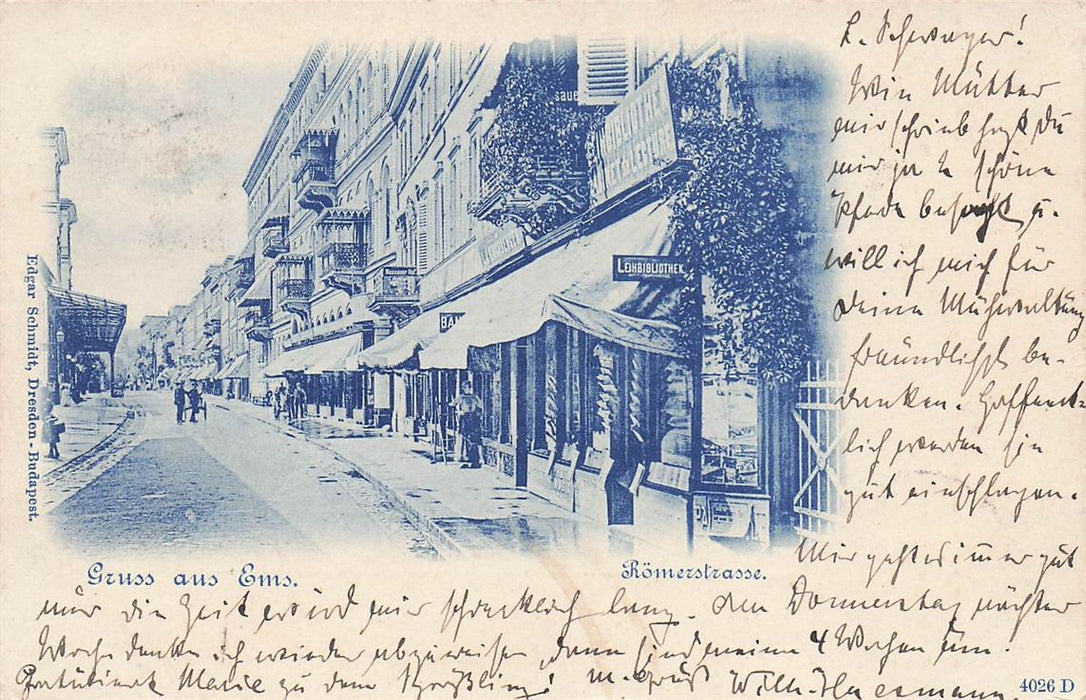 L. Schwager!
Wie Mutter
mir schrieb hast Du
mir ja 2 schöne
Pferde besorgt u.
will ich mich für
Deine Mühewaltung
freundlichst be-
danken. Hoffent-
lich werden sie
gut einschlagen.
Mir geht es immer gut
nur die Zeit wird mir schrecklich lang. Den Donnerstag nächster
Woche denke ich wieder abzureisen, dann sind meine 4 Wochen um.
Gratuliere Marie zu dem Sprößling! M. Gruß Wilh.
SAUE
LEIHBIBLIOTHEK
BAN
Gruss aus Ems.
Römerstrasse.
Edgar Schmidt, Dresden-Budapest.
4026 D